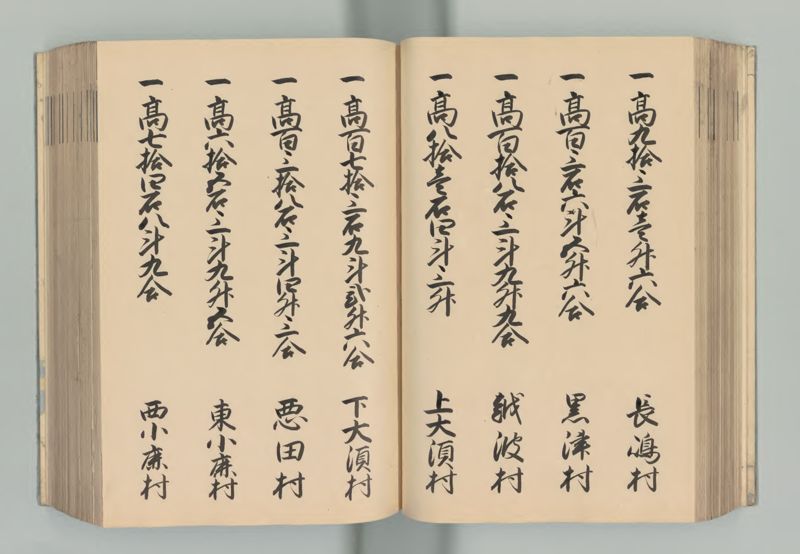 一高九拾三石壱升六合 長嶋村
一高百三石六斗五升六合 黒津村
一高百拾八石三斗九升九合 越波村
一高八拾壱石四斗三升 上大須村
一高百七拾三石九斗弐升六合 下大須村
一高百三拾八石三斗四升三合 悪田村
一高六拾五石三斗九升五合 東小鹿村
一高七拾四石八斗九合 西小鹿村